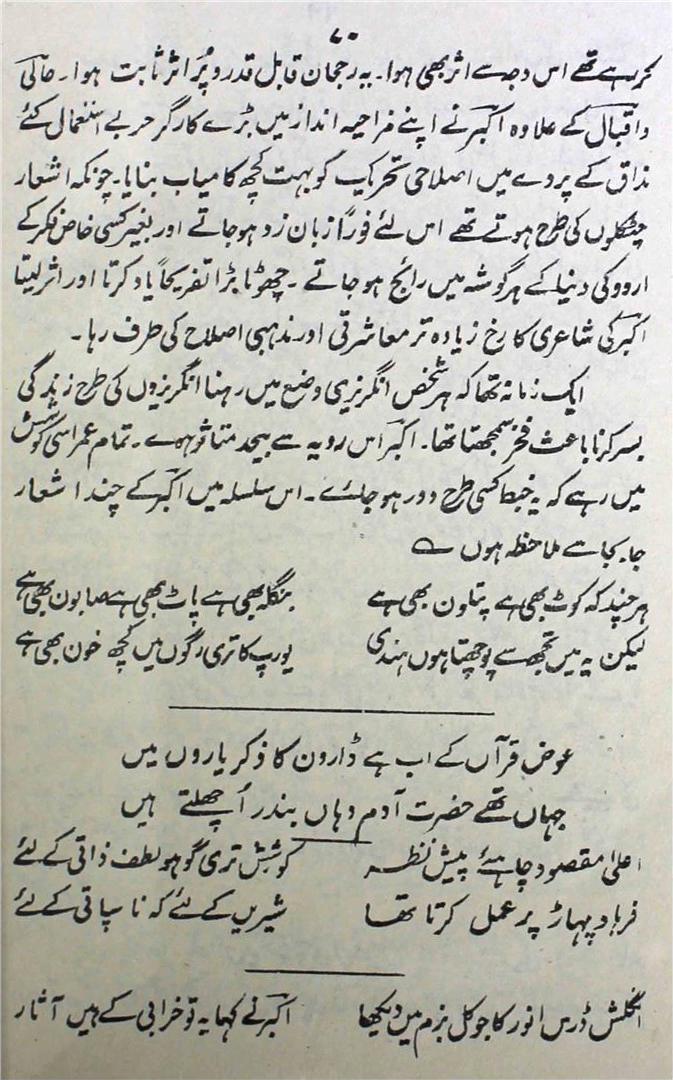 ۷۰
کر رہے تھے اس وجہ سے اثر بھی ہوا۔ یہ رجحان قابل قدر و پُر اثر ثابت ہوا۔ حالیؔ
و اقبالؔ کے علاوہ اکبرؔ نے اپنے مزاحیہ انداز میں بڑے کارگر حربے استعمال کئے
مذاق کے پردے میں اصلاحی تحریک کو بہت کچھ کامیاب بنایا۔ چونکہ اشعار
چٹکلوں کی طرح ہوتے تھے اس لئے فوراً زبان زد ہو جاتے اور بغیر کسی خاص فکر کے
اردو کی دنیا کے ہر گوشہ میں رائج ہو جاتے۔ چھوٹا بڑا تفریحاً یاد کرتا اور اثر لیتا
اکبرؔ کی شاعری کا رخ زیادہ تر معاشرتی اور مذہبی اصلاح کی طرف رہا۔
ایک زمانہ تھا کہ ہر شخص انگریزی وضع میں رہنا انگریزوں کی طرح زندگی
بسر کرنا باعث فخر سمجھتا تھا۔ اکبرؔ اس رویہ سے بیحد متاثر ہوے۔ تمام عمر اسی کوشش
میں رہے کہ یہ خبط کسی طرح دور ہو جائے۔ اس سلسلہ میں اکبرؔ کے چند اشعار
جا بجا سے ملاحظہ ہوں ؎
ہر چند کہ کوٹ بھی ہے پتلون بھی ہے بنگلہ بھی ہے پاٹ بھی ہے صابون بھی ہے
لیکن یہ میں تجھ سے پوچھتا ہوں ہندی یورپ کا تری رگوں میں کچھ خون بھی ہے
عوض قرآں کے اب ہے ڈارون کا ذکر یاروں میں
جہاں تھے حضرت آدم وہاں بندر اُچھلتے ہیں
اعلیٰ مقصود چاہئے پیش نظر کوشش تری گو ہو لطف ذاتی کے لئے
فرہاد پہاڑ پر عمل کرتا تھا شیریں کے لئے کہ ناسپاتی کے لئے
انگلش ڈرس انور کا جو کل بزم میں دیکھا اکبرؔ نے کہا یہ تو خرابی کے ہیں آثار